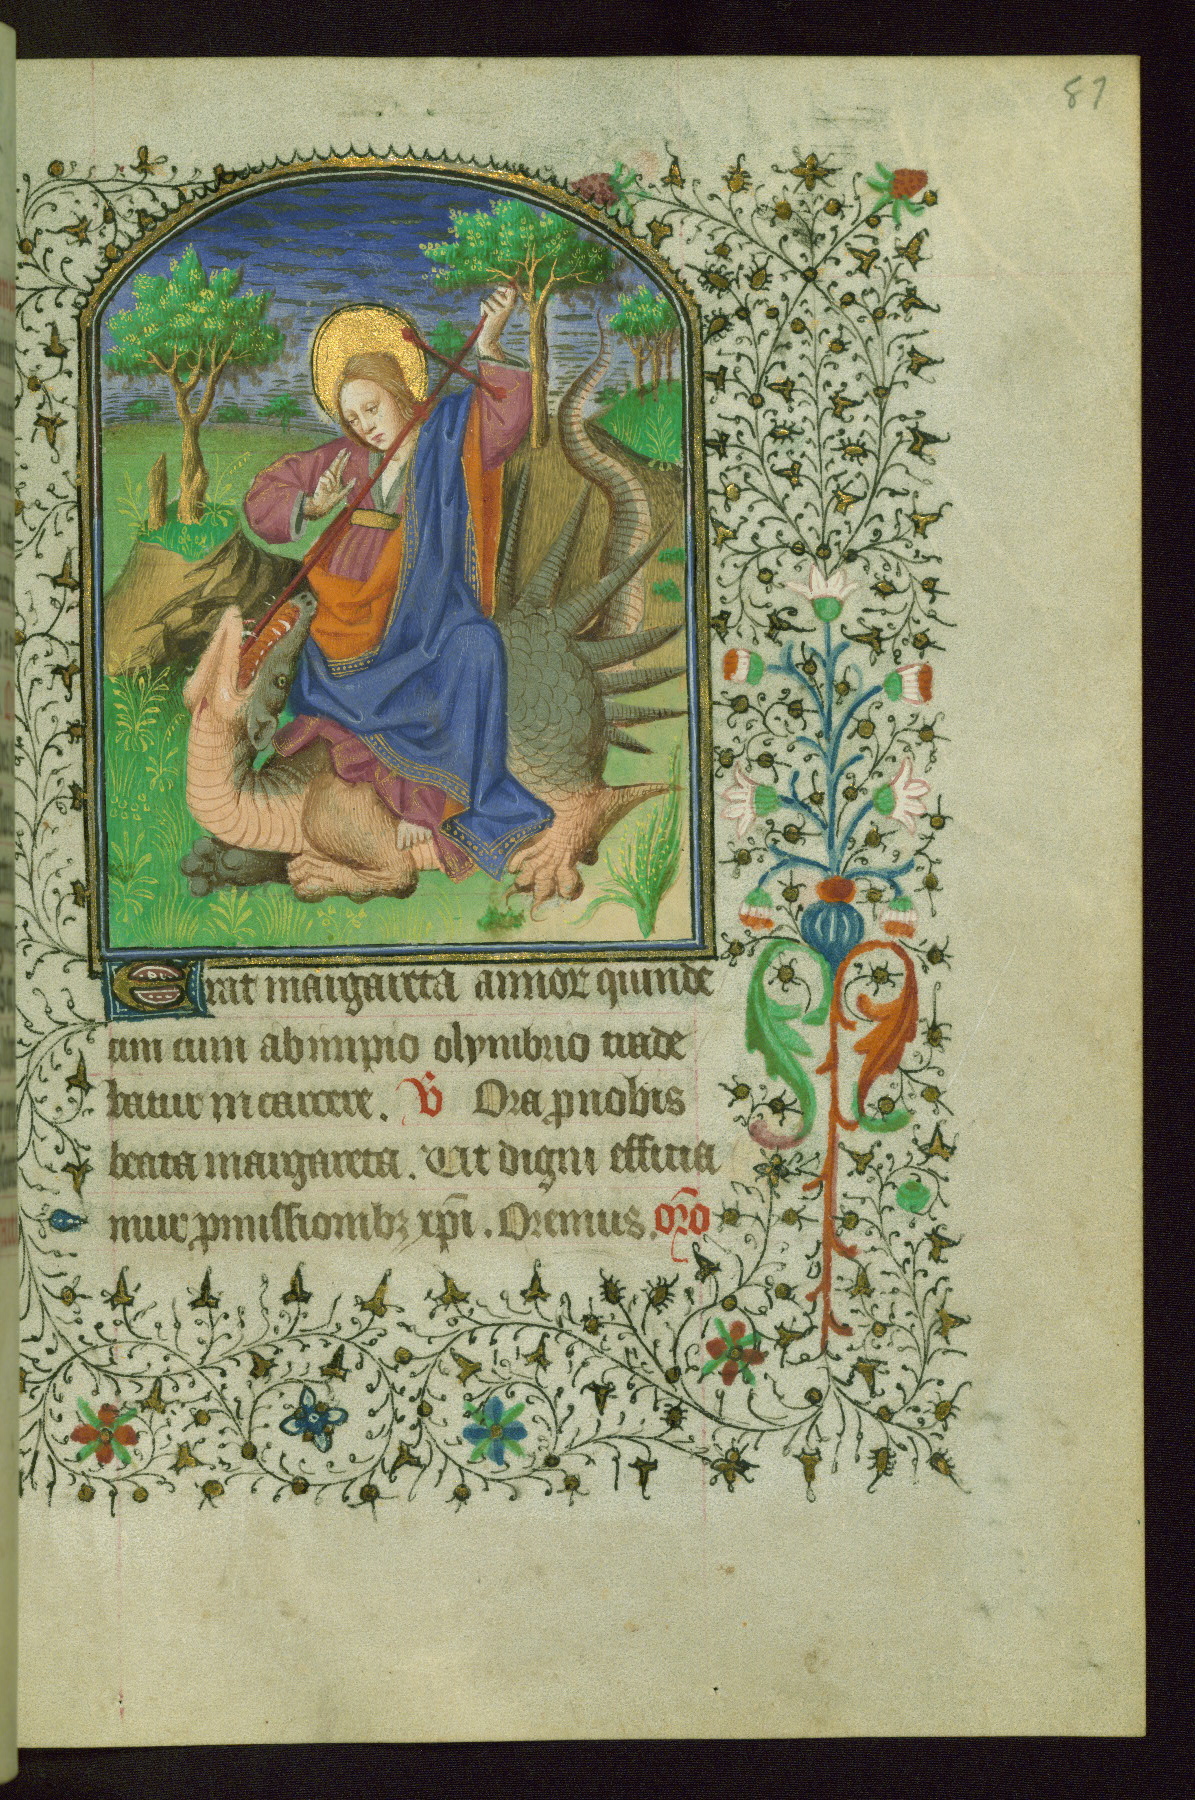 87
Erat margareta annor quinde
cim cum ab impio olymbrio trade
batur in carcere. V Ora p nobis
beata margareta. Ut digni efficia
mur pmissionibz xpi. Oremus. oro